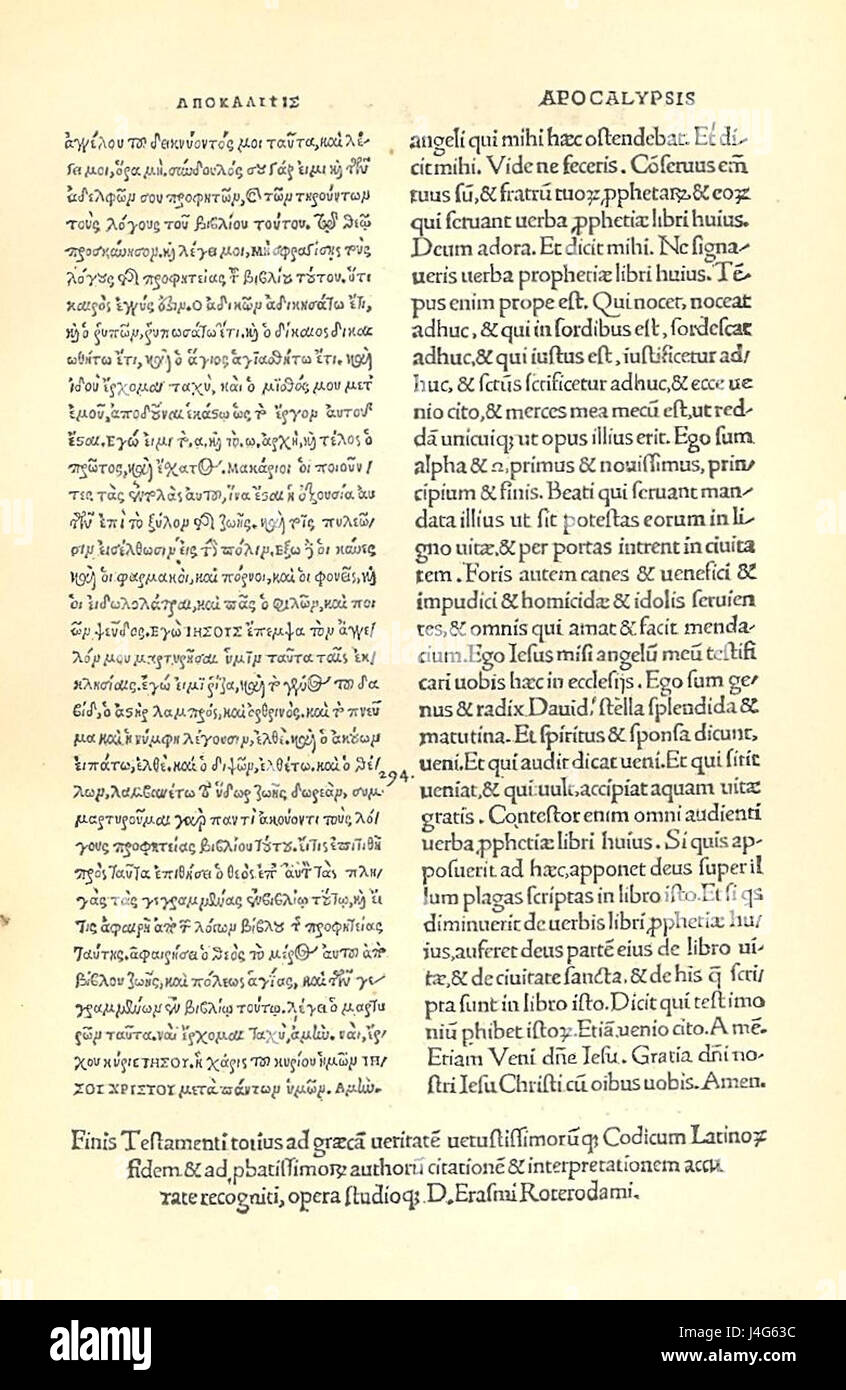 ΑΠΟΚΑΛΙΨΙΣ
ἀγγέλου τοῦ δεικνύοντός μοι ταῦτα, καὶ λέ-
γει μοι, ὅρα μή. σύνδουλός σου γάρ εἰμι καὶ τῶν
ἀδελφῶν σου προφητῶν, καὶ τῶν τηρούντων
τοὺς λόγους τοῦ βιβλίου τούτου. τῷ θεῷ
προσκύνησον. καὶ λέγει μοι, μὴ σφραγίσῃς τοὺς
λόγους τῆς προφητείας τοῦ βιβλίου τούτου. ὅτι
καιρὸς ἐγγύς ἐστιν. ὁ ἀδικῶν ἀδικησάτω ἔτι,
καὶ ὁ ῥυπῶν, ῥυπωσάτω ἔτι. καὶ ὁ δίκαιος δικαι
ωθήτω ἔτι, καὶ ὁ ἅγιος ἁγιασθήτω ἔτι. καὶ
ἰδοὺ ἔρχομαι ταχύ, καὶ ὁ μισθός μου μετ
ἐμοῦ, ἀποδοῦναι ἑκάστῳ ὡς τὸ ἔργον αὐτοῦ
ἔσται. Εγώ εἰμι τὸ .α. καὶ τὸ .ω. ἀρχὴ καὶ τέλος ὁ
πρῶτος, καὶ ἔσχατος. Μακάριοι οἱ ποιοῦν/
τες τὰς ἐντολὰς αὐτοῦ, ἵνα ἔσται ἡ ἐξουσία αὐ
τῶν ἐπὶ τὸ ξύλον τῆς ζωῆς. καὶ τοῖς πυλεῶ/
σιν εἰσέλθωσιν εἰς τὴν πόλιν. Εξω δὲ οἱ κύνες
καὶ οἱ φαρμακοί, καὶ πόρνοι, καὶ οἱ φονεῖς, καὶ
οἱ εἰδωλολάτραι, καὶ πᾶς ὁ φιλῶν, καὶ ποι
ῶν ψεῦδος. Εγὼ ΙΗΣΟΥΣ ἔπεμψα τὸν ἄγγε/
λόν μου μαρτυρῆσαι ὑμῖν ταῦτα ταῖς ἐκ/
κλησίαις. Εγώ εἰμι ἡ ῥίζα, καὶ τὸ γένος τοῦ δα
βίδ, ὁ ἀστὴρ λαμπρὸς, καὶ ὀρθρινός. καὶ τὸ πνεῦ
μα καὶ ἡ νύμφη λέγουσιν, ἐλθέ. καὶ ὁ ἀκούων
εἰπάτω, ἐλθέ. καὶ ὁ διψῶν, ἐλθέτω. καὶ ὁ θέ/
λων, λαμβανέτω τὸ ὕδωρ ζωῆς δωρεάν, συμ
μαρτυροῦμαι γὰρ παντὶ ἀκούοντι τοὺς λό/
γους προφητείας βιβλίου τούτου. εἴ τις ἐπιτιθῇ
πρὸς ταῦτα ἐπιθήσει ὁ θεὸς ἐπ᾽ αὐτὸν τὰς πλη/
γὰς τὰς γεγραμμένας ἐν βιβλίῳ τούτῳ, καὶ εἴ
τις ἀφαιρῇ ἀπὸ τῶν λόγων βίβλου τῆς προφητείας
ταύτης, ἀφαιρήσει ὁ θεὸς τὸ μέρος αὐτοῦ ἀπὸ
βίβλου ζωῆς, καὶ πόλεως ἁγίας, καὶ τῶν γε/
γραμμένων ἐν βιβλίῳ τούτῳ. λέγει ὁ μαρτυ
ρῶν ταῦτα. ναὶ ἔρχομαι ταχὺ, ἀμήν. ναί, ἔρ/
χου κύριε ΙΗΣΟΥ. ἡ χάρις τοῦ κυρίου ἡμῶν ΙΗ/
ΣΟΥ ΧΡΙΣΤΟΥ μετὰ πάντων ὑμῶν. Αμήν.
294.
APOCALYPSIS
angeli qui mihi hæc ostendebat. Et di-
cit mihi. Vide ne feceris. Cōseruus em̄
tuus sū, & fratrū tuoꝝ, ꝓphetarꝝ, & eoꝝ
qui seruant uerba ꝓphetiæ libri huius.
Deum adora. Et dicit mihi. Ne signa-
ueris uerba prophetiæ libri huius. Tē-
pus enim prope est. Qui nocet, noceat
adhuc, & qui in sordibus est, sordescat
adhuc, & qui iustus est, iustificetur ad/
huc, & sctūs scrificetur adhuc, & ecce ue
nio cito, & merces mea mecū est, ut red-
dā unicuiqꝫ ut opus illius erit. Ego sum
alpha & ω, primus & nouissimus, prin-
cipium & finis. Beati qui seruant man-
data illius ut sit potestas eorum in li-
gno uitæ, & per portas intrent in ciuita
tem. Foris autem canes & uenefici &
impudici & homicidæ & idolis seruien
tes, & omnis qui amat & facit menda-
cium. Ego Iesus misi angelū meū testifi
cari uobis hæc in ecclesijs. Ego sum ge-
nus & radix Dauid, stella splendida &
matutina. Et spiritus & sponsa dicunt,
ueni. Et qui audit dicat ueni. Et qui sitit
ueniat, & qui uult, accipiat aquam uitæ
gratis. Contestor enim omni audienti
uerba ꝓphetiæ libri huius. Si quis ap-
posuerit ad hæc, apponet deus super il
lum plagas scriptas in libro isto. Et si qs
diminuerit de uerbis libri ꝓphetiæ hu/
ius, auferet deus partē eius de libro ui-
tæ, & de ciuitate sancta, & de his q̄ scri/
pta sunt in libro isto. Dicit qui testimo
niū phibet istoꝝ. Etiā, uenio cito. A mē.
Etiam Veni dn̄e Iesu. Gratia dn̄i no-
stri Iesu Christi cū oibus uobis. Amen.
Finis Testamenti totius ad græcā ueritatē uetustissimorūqꝫ Codicum Latinoꝝ
fidem & ad ꝓbatissimoꝝ authorū citationē & interpretationem accu
rate recogniti, opera studioqꝫ D. Erasmi Roterodami.
alamy
J4G63C
www.alamy.com